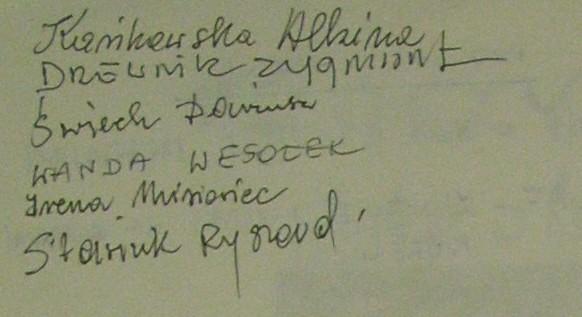 Kańkowska Albina
DREWNIK Zygmunt
Świech Dariusz
WANDA WESOŁEK
Irena Misiowiec
Stasiuk Ryszard